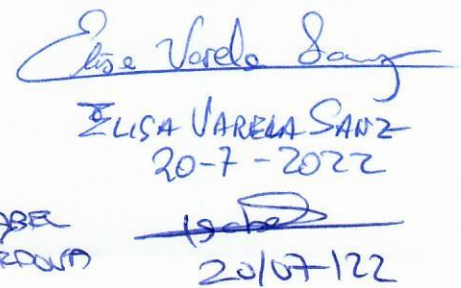 Elisa Varela Sanz
ELISA VARELA SANZ
20-7-2022
ABEL Isabel
20/07/22